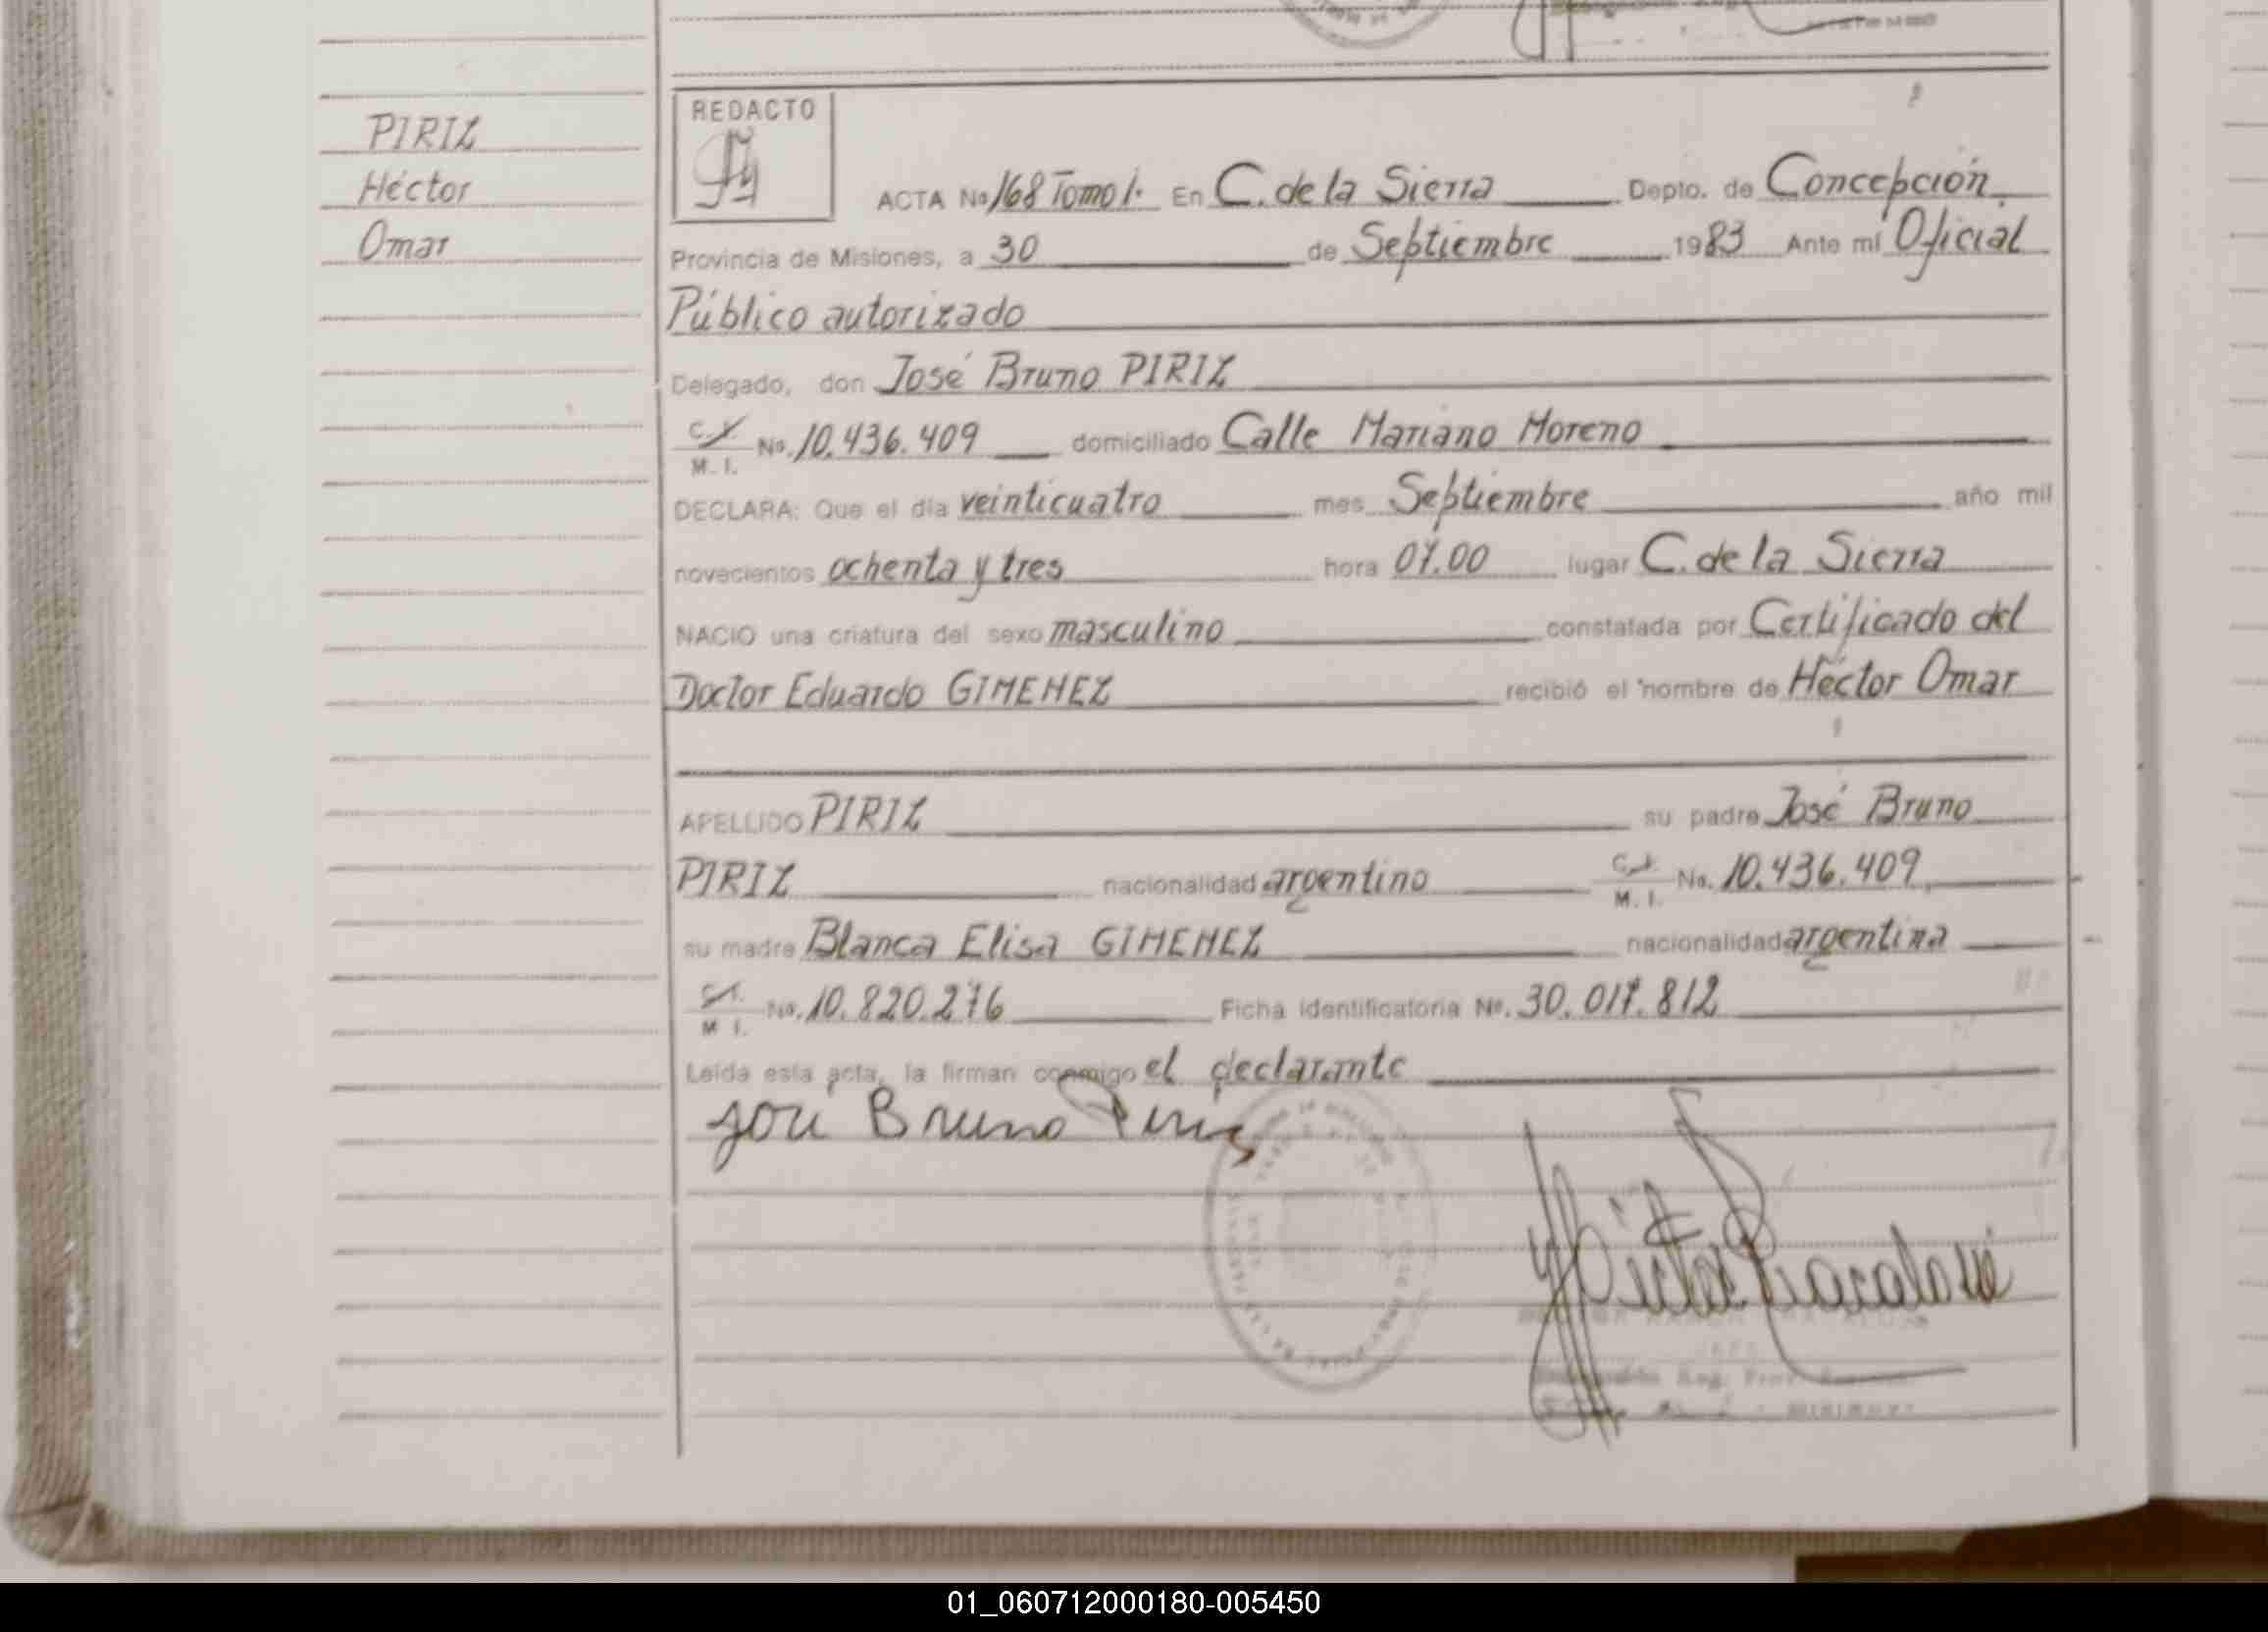 PIRIZ
Héctor
Omar
REDACTO
ACTA No 168 Tomo 1. En C. de la Sierra Depto. de Concepción
Provincia de Misiones, a 30 de Septiembre 1983 Ante mí Oficial
Público autorizado
Delegado, don José Bruno PIRIZ
C. I. M. I. No. 10.436.409 domiciliado Calle Mariano Moreno
DECLARA: Que el día veinticuatro mes Septiembre año mil
novecientos ochenta y tres hora 07.00 lugar C. de la Sierra
NACIO una criatura del sexo masculino constatada por Certificado del
Doctor Eduardo GIMENEZ recibió el nombre de Héctor Omar
APELLIDO PIRIZ su padre José Bruno
PIRIZ nacionalidad argentino C. I. M. I. No. 10.436.409
su madre Blanca Elisa GIMENEZ nacionalidad argentina
C. I. M. I. No. 10.820.276 Ficha Identificatoria No. 30.017.812
Leída esta acta, la firman conmigo el declarante
José Bruno Piriz
01_060712000180-005450